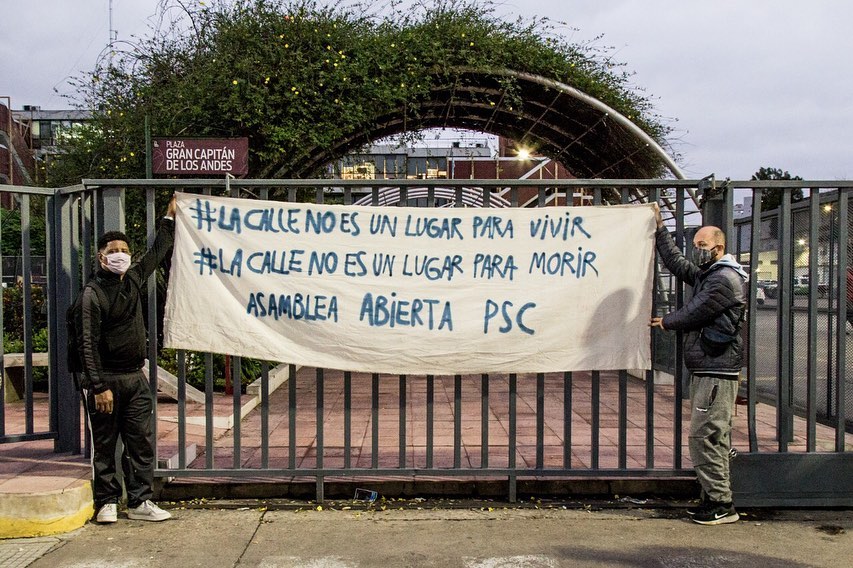 PLAZA
GRAN CAPITÁN
DE LOS ANDES
#LA CALLE NO ES UN LUGAR PARA VIVIR
#LA CALLE NO ES UN LUGAR PARA MORIR
ASAMBLEA ABIERTA PSC